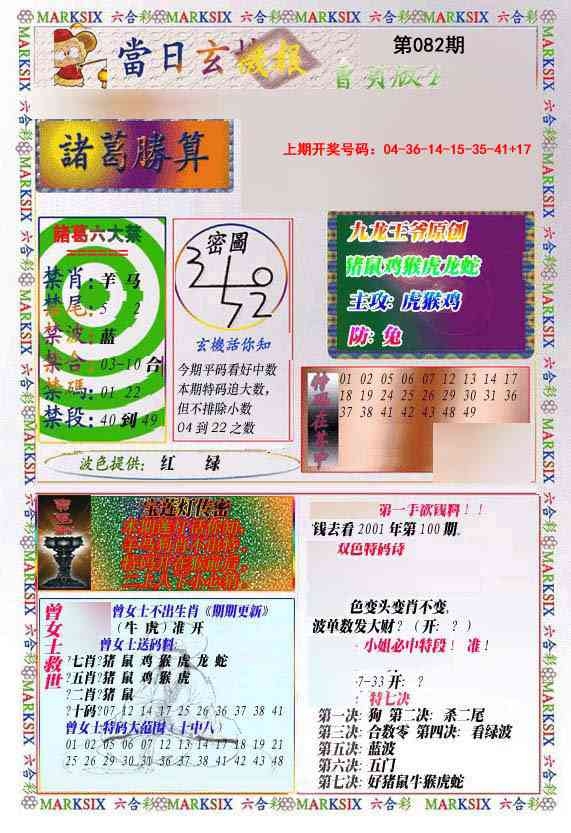 MARKSIX 六合彩 MARKSIX 六合彩 MARKSIX 六合彩 MARKSIX 六合彩
當日玄機報
第082期
諸葛勝算
上期开奖号码：04-36-14-15-35-41+17
諸葛六大禁
禁肖：羊 马
禁尾：5 2
禁波：蓝
禁合：03-10 合
禁碼：01 22
禁段：40 到 49
密圖
玄機話你知
今期平码看好中数
本期特码追大数，
但不排除小数
04 到 22 之数
九龙王爷原创
猪鼠鸡猴虎龙蛇
主攻：虎猴鸡
防：兔
01 02 05 06 07 12 13 14 17
18 19 24 25 26 29 30 31 36
37 38 41 42 43 48 49
波色提供： 红 绿
宝莲灯传密
第一手欲钱料！！
钱去看 2001 年第 100 期。
双色特码诗
色变头变肖不变，
波单数发大财？（开：？）
小姐必中特段！ 准！
7-33 开：？
特七决
第一决：狗 第二决：杀二尾
第三决：合数零 第四决：看绿波
第五决：蓝波
第六决：五门
第七决：好猪鼠牛猴虎蛇
曾女士救世
曾女士不出生肖《期期更新》
（牛 虎）准 开
曾女士送码料
?七肖?猪 鼠 鸡 猴 虎 龙 蛇
?五肖?猪 鼠 鸡 猴 虎
?二肖?猪 鼠
?十码?07 12 14 17 25 26 36 37 38 41
曾女士特码大范围（十中八）
01 02 05 06 07 12 13 14 17 18 19 21
25 26 29 30 31 36 37 38 41 42 43 48
MARKSIX 六合彩 MARKSIX 六合彩 MARKSIX 六合彩 MARKSIX 六合彩